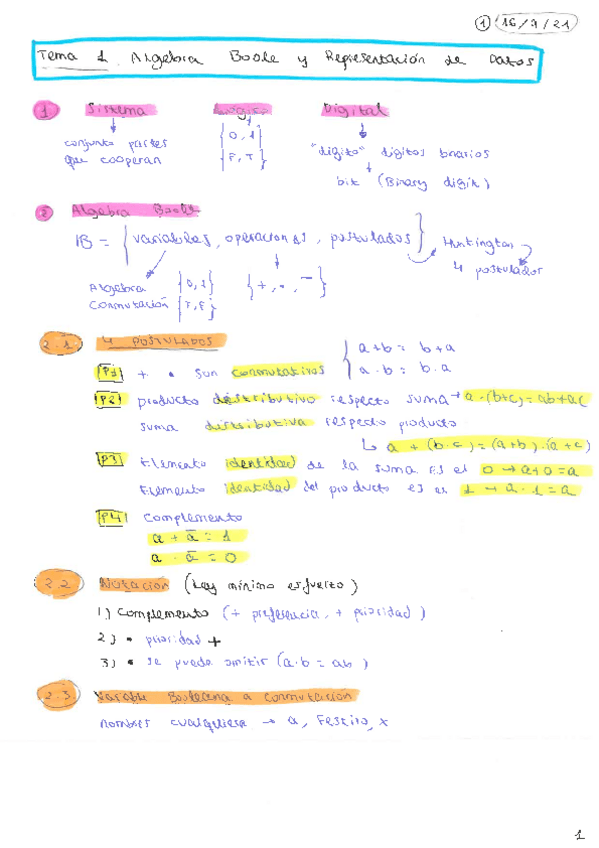 1 16/9/21
Tema 1. Algebra Boole y Representación de Datos
1 Sistema Lógico Digital
conjunto partes que cooperan
{0,1}
{F,T}
"dígito" dígitos binarios
bit (Binary digit)
2 Algebra Boole
IB = {variables, operaciones, postulados} Huntington
4 postulados
Algebra Conmutación {0,1} {T,F}
{+, ·, ¯}
2.1 4 POSTULADOS
P1 + · son conmutativos { a+b = b+a
a·b = b·a
P2 producto distributivo respecto suma → a·(b+c) = ab+ac
suma distributiva respecto producto
↳ a + (b·c) = (a+b)·(a+c)
P3 Elemento identidad de la suma es el 0 → a+0=a
Elemento identidad del producto es el 1 → a·1=a
P4 Complemento
a + ā = 1
a · ā = 0
2.2 Notación (Ley mínimo esfuerzo)
1) Complemento (+ preferencia, + prioridad)
2) · prioridad +
3) · se puede omitir (a·b = ab)
2.3 Variable Booleana a conmutación
nombres cualquiera → a, x
1